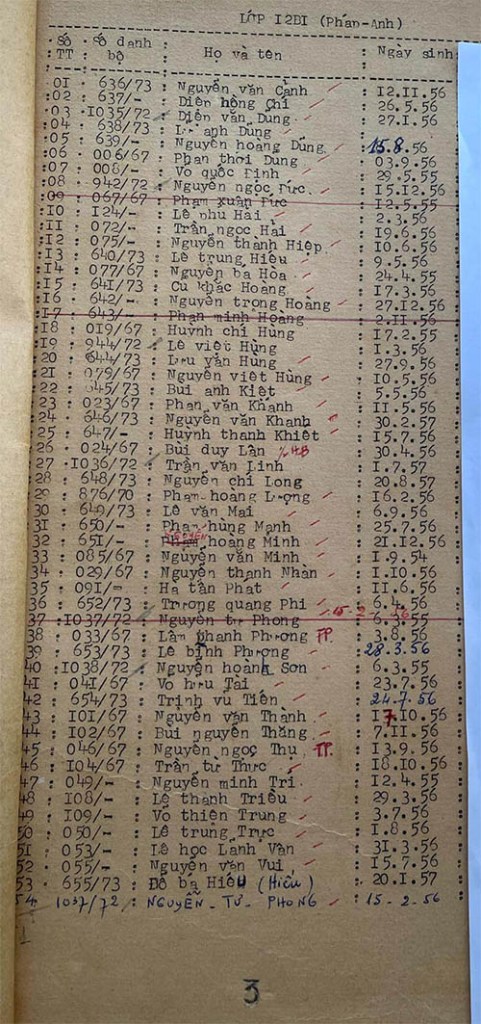 LỚP I2BI (Phan-Anh)
Số TT : Số danh bộ : Họ và tên : Ngày sinh
OI : 636/73 : Nguyễn văn Cảnh : I2.II.56
:02 : 637/- : Diên hồng Chi : 26.5.56
:03 ·IO35/72 : Diện văn Dung : 27.I.56
:04 : 638/73 : anh Dũng
:05 : 639/- : Nguyễn hoàng Dũng : 15.8.56
:06 · 006/67 : Phan thới Dung : 03.9.56
:07 : 008/- : Vo quốc Định : 29.5.55
:08 · 942/72 : Nguyễn ngọc Đức : I5.I2.56
:09 · 067/67 : Phạm xuân Đức : I2.5.55
:IO : I24/- : Lê phu Hải : 2.3.56
:II : 072/- : Trần ngọc Hải : I9.6.56
:I2 : 075/- : Nguyễn thanh Hiệp : IO.6.56
:I3 : 640/73 : Lê trung Hiếu : 9.5.56
:I4 : 077/67 : Nguyễn bá Hòa : 24.4.55
:I5 : 64I/73 : Cu khắc Hoàng : I7.3.56
:I6 : 642/- : Nguyễn trọng Hoàng : 27.I2.56
:I7 : 643/- : Phan minh Hoàng : 2.II.56
:I8 : 0I9/67 : Huỳnh chí Hùng : I7.2.55
:I9 : 944/72 : Lê việt Hùng : I.3.56
:20 : 644/73 : Lưu văn Hùng : 27.9.56
:2I : 079/67 : Nguyễn viết Hùng : IO.5.56
:22 : 645/73 : Bui anh Kiệt : 5.5.56
:23 : 023/67 : Phan văn Khánh : II.5.56
:24 · 646/73 : Nguyễn văn Khanh : 30.2.57
:25 : 647/- : Huỳnh thanh Khiết : I5.7.56
:26 · 024/67 : Bùi duy Lân : 30.4.56
:27 ·IO36/72 : Trần văn Linh : I.7.57
:28 : 648/73 : Nguyễn chí Long : 20.8.57
29 : 876/70 : Phạm hoàng Lượng : I6.2.56
30 : 649/73 : Lê văn Mai : 6.9.56
3I : 650/- : Phan hùng Mạnh : 25.7.56
32 : 65I/- : NGUYỄN hoàng Minh : 2I.I2.56
33 : 085/67 : Nguyễn văn Minh : I.9.54
34 · 029/67 : Nguyễn thanh Nhàn : I.IO.56
35 : 09I/- : Hạ tấn Phát : II.6.56
36 : 652/73 : Trương quang Phi : 6.4.56
37 :IO37/72 : Nguyễn tư Phong : 6.3.55
38 : 033/67 : Lâm thanh Phương TP. : 3.8.56
39 : 653/73 : Lê bỉnh Phương : 28.3.56
40 :IO38/72 : Nguyễn hoành Sơn : 6.3.55
4I : 04I/67 : Vo hưu Tai : 23.7.56
42 : 654/73 : Trịnh vu Tiến : 24.7.56
43 : IOI/67 : Nguyễn văn Thành : I7.IO.56
44 : IO2/67 : Bui nguyên Thăng : 7.II.56
45 : 046/67 : Nguyễn ngọc Thu TP. : I3.9.56
46 : IO4/67 : Trần tư Thưc : I8.IO.56
47 : 049/- : Nguyễn minh Trí : I2.4.55
48 : IO8/- : Lê thanh Triều : 29.3.56
49 : IO9/- : Võ thiện Trung : 3.7.56
50 : 050/- : Lê trung Trực : I.8.56
5I : 053/- : Lê học Lãnh Vân : 3I.3.56
52 : 055/- : Nguyễn văn Vui : I5.7.56
53 · 655/73 : Đỗ bá Hiếu (Hiếu) : 20.I.57
54. 1037/72 : NGUYỄN - TƯ - PHONG : 15-2-56
3